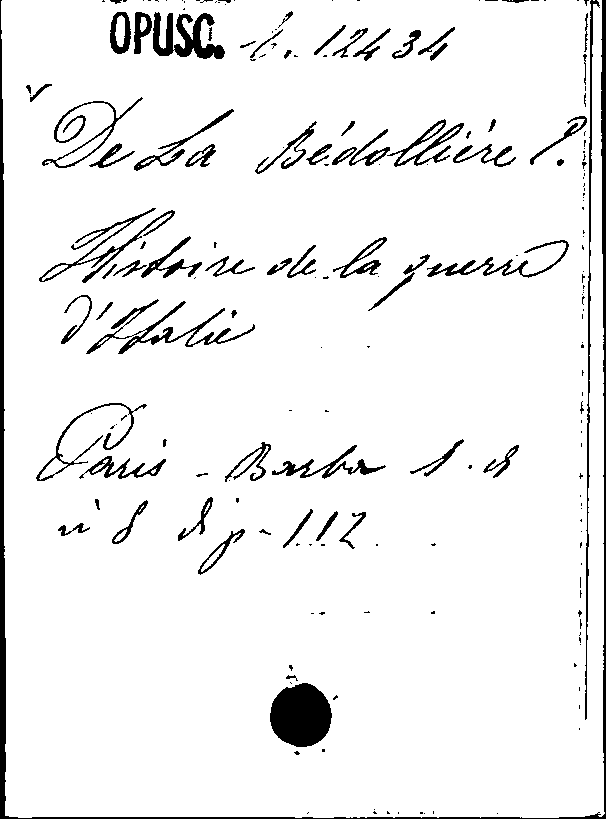 OPUSC. b. 12434
De La Bédollière E.
Histoire de la guerre
d'Italie
Paris - Barba s. d
in 8 di p. 112